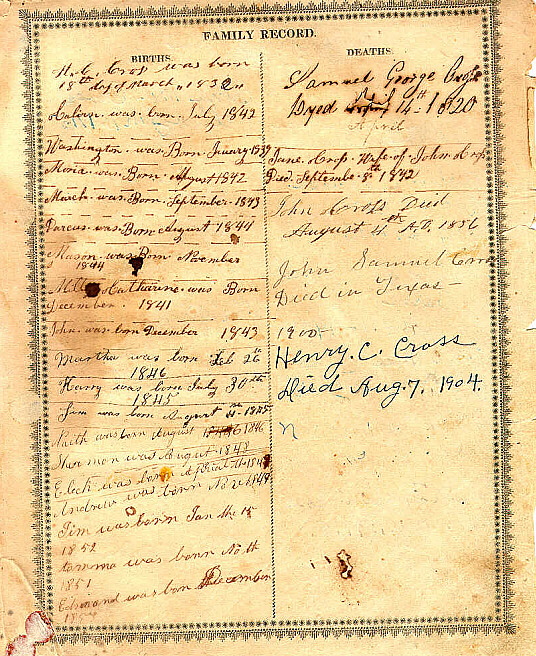 FAMILY RECORD.
BIRTHS.
H. C. Cross was born
18th day of March 1832
was born July 1842
Washington was Born 
Moria was Born August 1842
March was Born September 1843
Darcus was Born August 1844
Mason was Born November
1844
Catharine was Born
December 1841
John was born December 1843
Martha was born Feb 26th
1846
Harry was born July 30th
1845
Jim was born August 1845
was born August 1846
Sherman was August 1848
Eleck was born April
Andrew was born
Jim was born Jan the 15
1852
was born No th
1851
Edmond was born December
DEATHS.
Samuel George
Dyed 14th 1820
April
Jane Cross Wife of John Cross
Died Septembe 8th 1842
John Cross Died
August 4th A.D. 1856
John Samuel Cross
Died in Texas
1900
Henry C. Cross
Died Aug. 7, 1904.